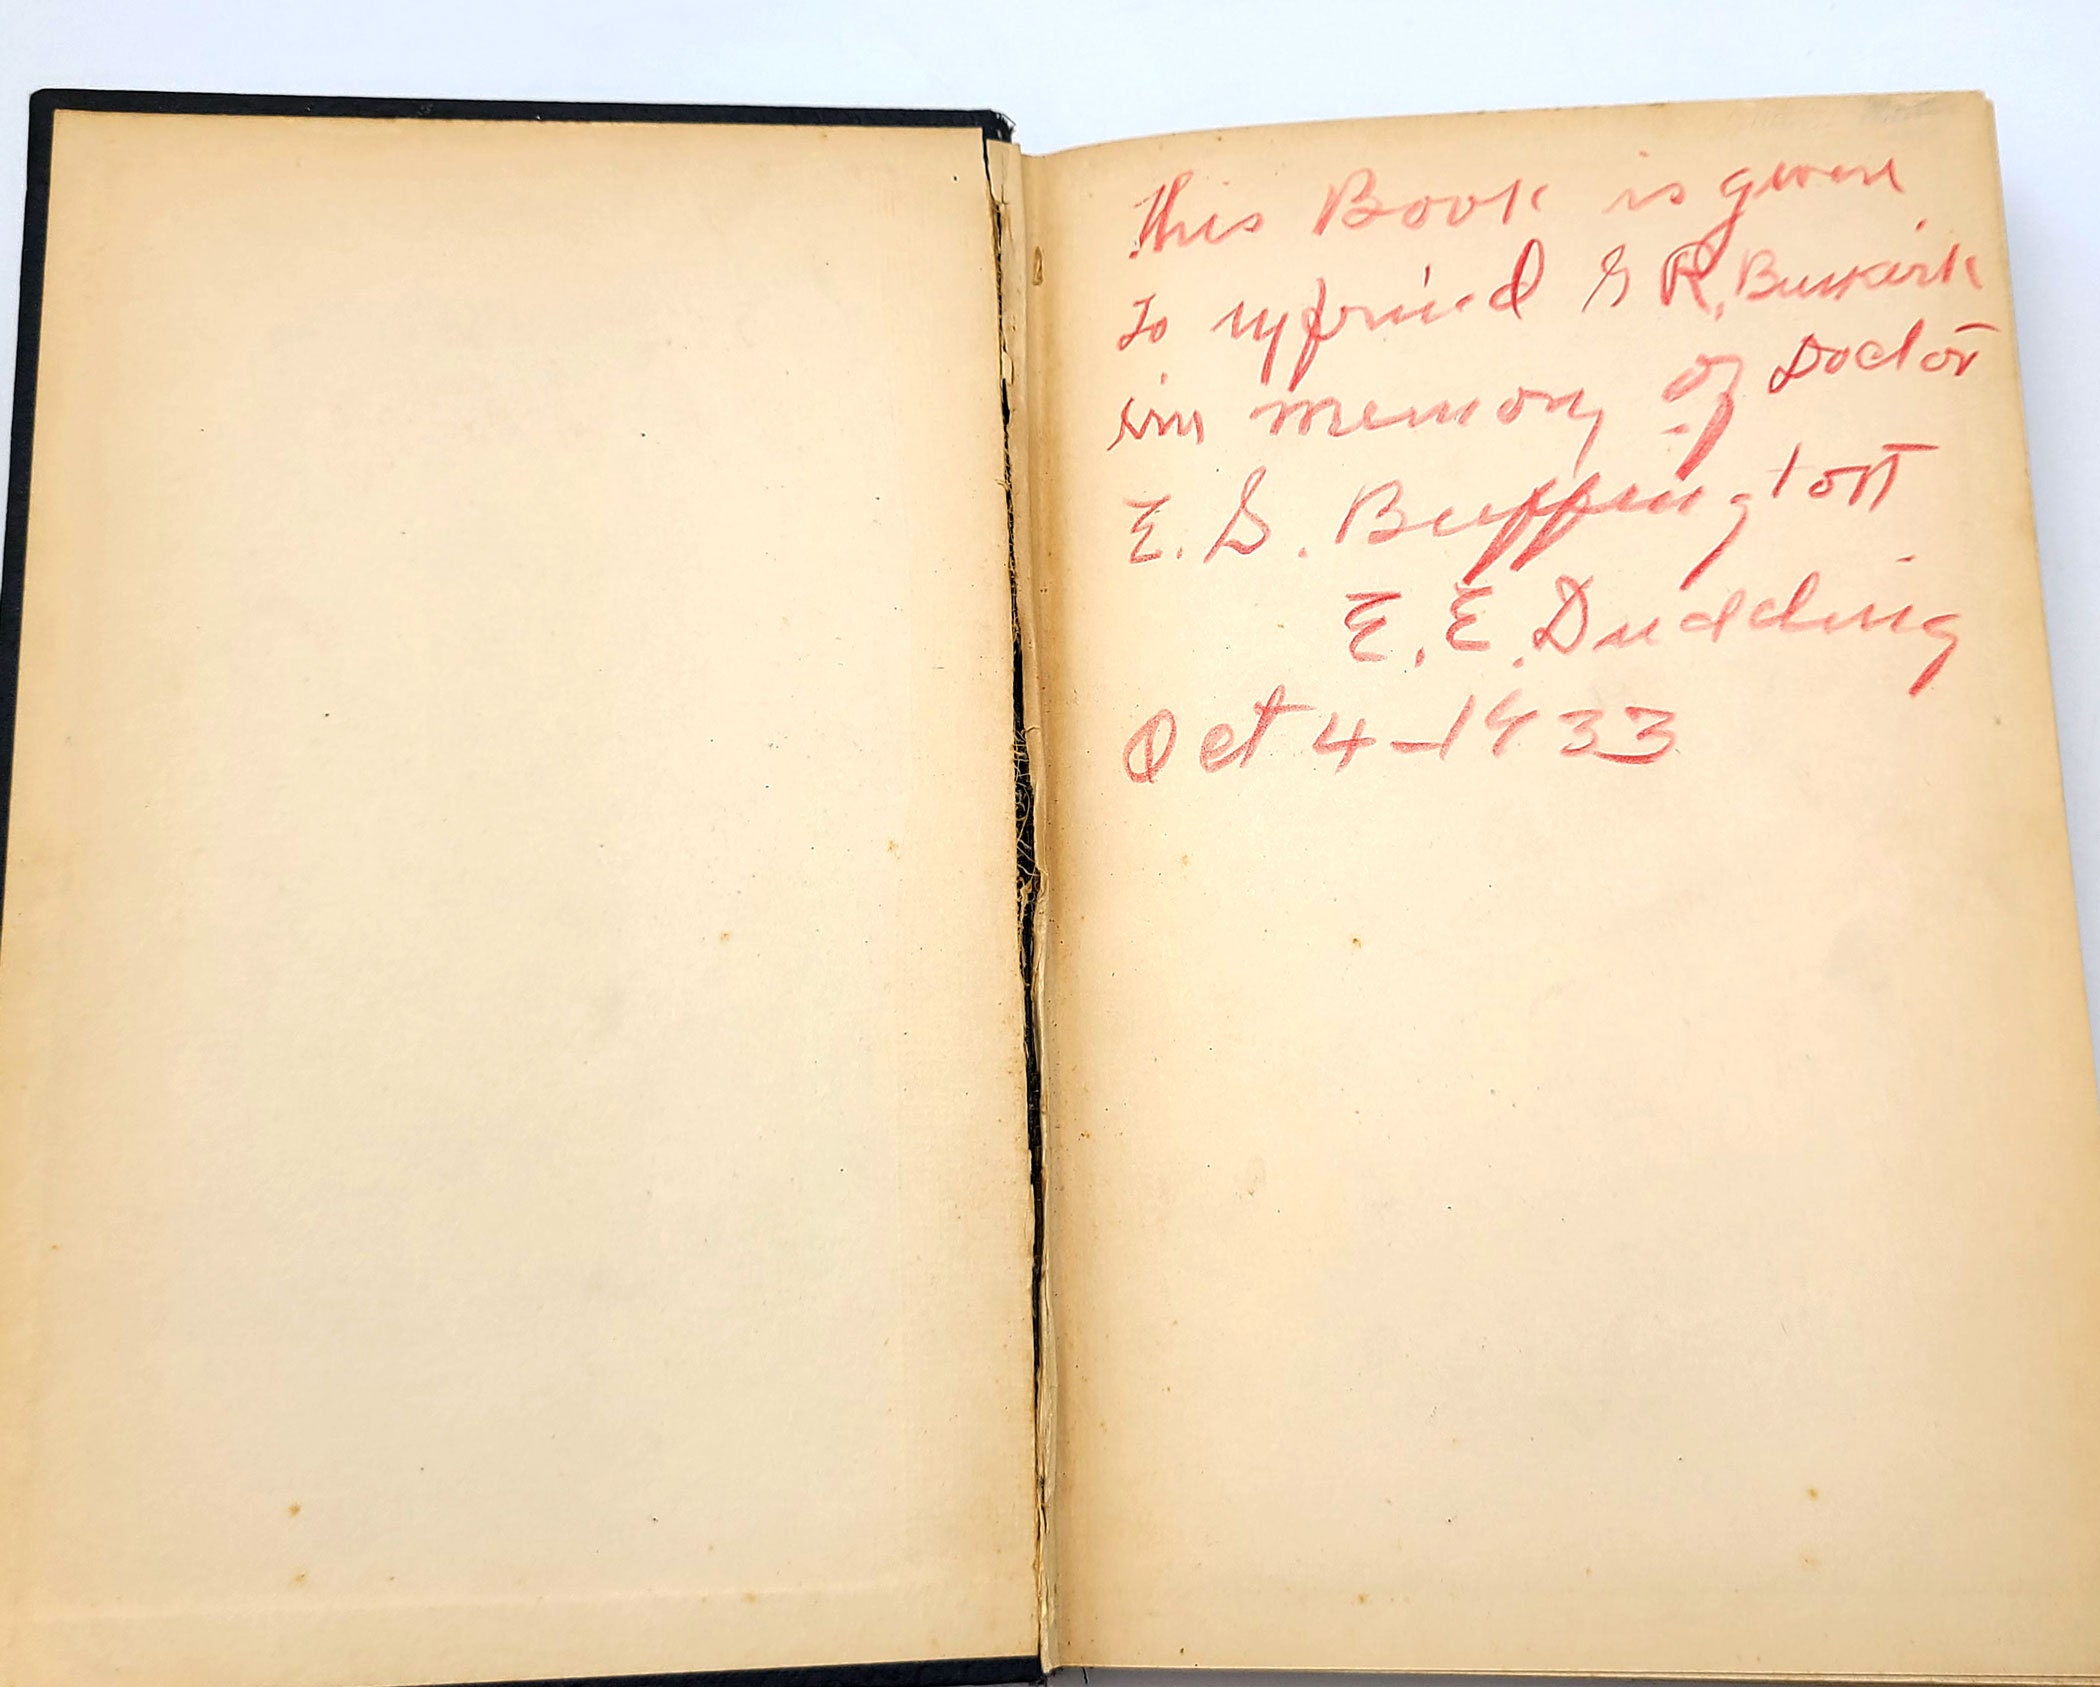 This Book is given
to my friend G R. Buskirk
in memory of Doctor
E. G. Buffington
E. E. Dudding
Oct 4-1933